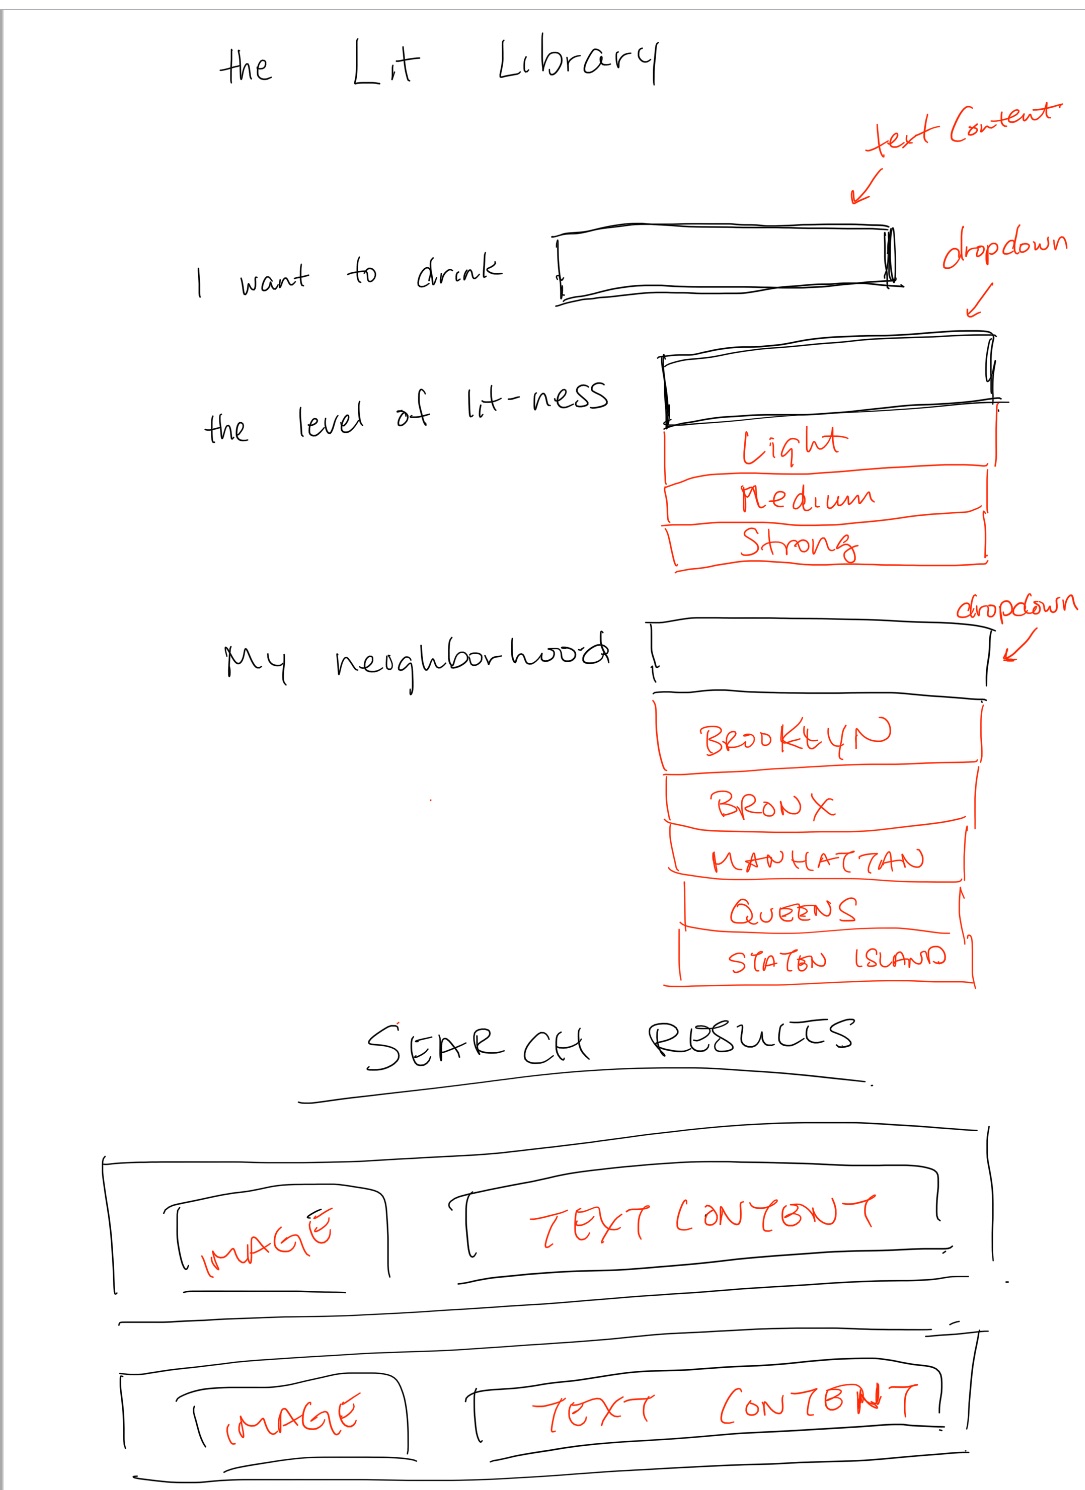 the Lit Library
text Content
I want to drink
dropdown
the level of lit-ness
Light
Medium
Strong
dropdown
My neighborhood
BROOKLYN
BRONX
MANHATTAN
QUEENS
STATEN ISLAND
SEARCH RESULTS
IMAGE TEXT CONTENT
IMAGE TEXT CONTENT